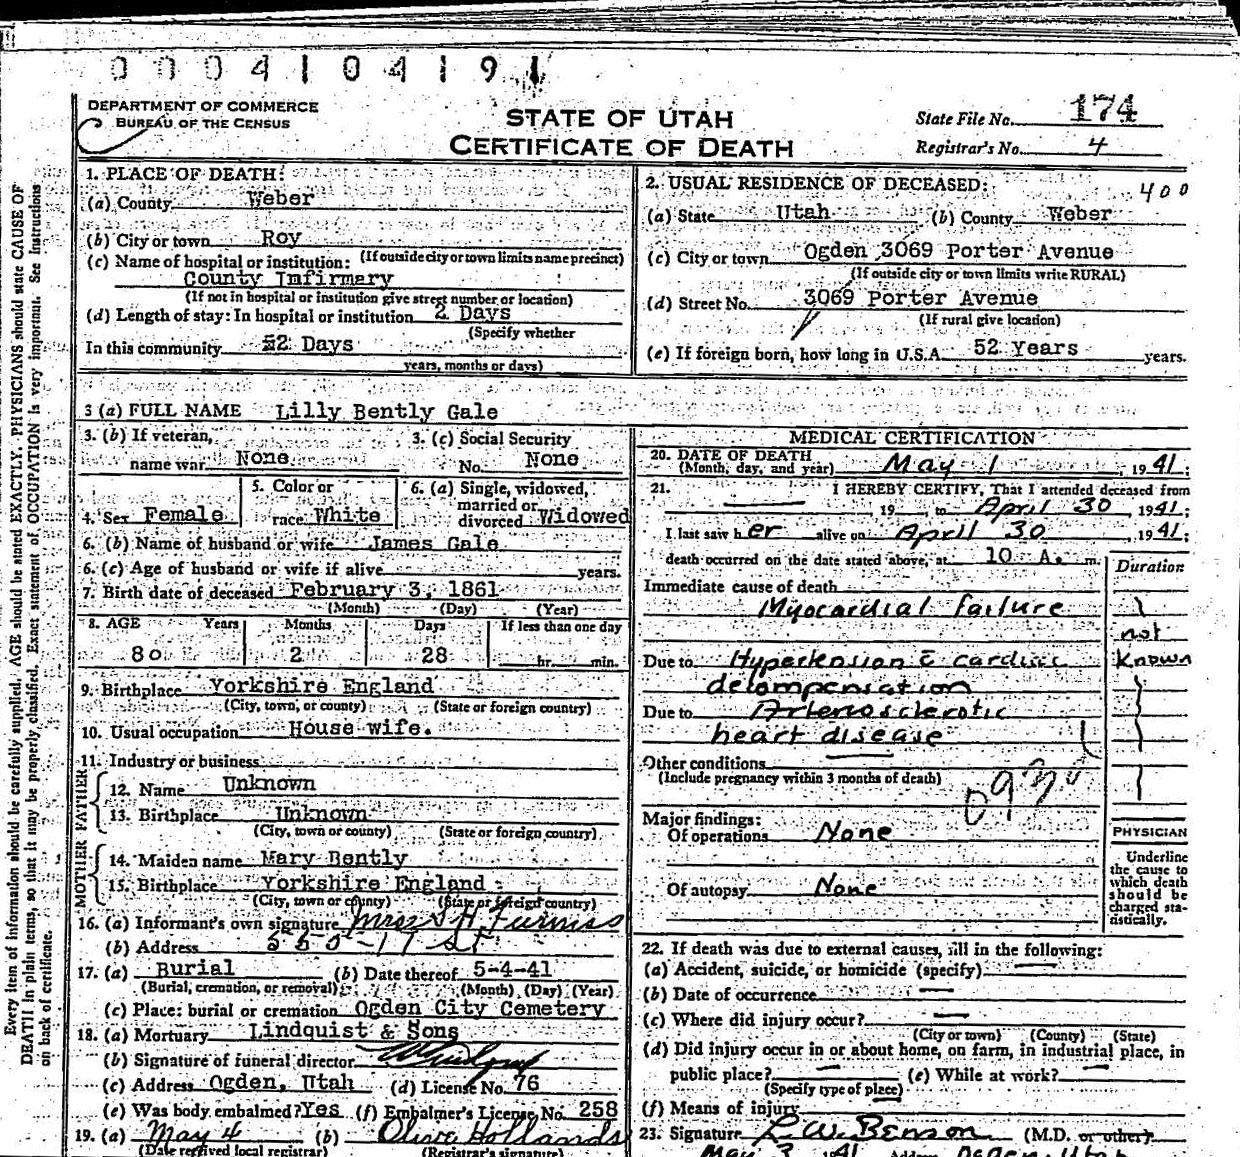 0004104191
DEPARTMENT OF COMMERCE
BUREAU OF THE CENSUS
STATE OF UTAH
CERTIFICATE OF DEATH
State File No. 174
Registrar's No. 4
Every item of information should be carefully supplied. AGE should be stated EXACTLY. PHYSICIANS should state CAUSE OF
DEATH in plain terms, so that it may be properly classified. Exact statement of OCCUPATION is very important. See Instructions
on back of certificate.
1. PLACE OF DEATH:
(a) County Weber
(b) City or town Roy
(If outside city or town limits name precinct)
(c) Name of hospital or institution:
County Imfirmary
(If not in hospital or institution give street number or location)
(d) Length of stay: In hospital or institution 2 Days
(Specify whether
In this community 52 Days
years, months or days)
2. USUAL RESIDENCE OF DECEASED:
400
(a) State Utah (b) County Weber
(c) City or town Ogden 3069 Porter Avenue
(If outside city or town limits write RURAL)
(d) Street No. 3069 Porter Avenue
(If rural give location)
(e) If foreign born, how long in U.S.A. 52 Years years.
3 (a) FULL NAME Lilly Bently Gale
3. (b) If veteran,
name war None
3. (c) Social Security
No. None
4. Sex Female
5. Color or
race White
6. (a) Single, widowed,
married or
divorced Widowed
6. (b) Name of husband or wife James Gale
6. (c) Age of husband or wife if alive years.
7. Birth date of deceased February 3, 1861
(Month) (Day) (Year)
8. AGE Years Months Days If less than one day
80 2 28 hr. min.
9. Birthplace Yorkshire England
(City, town, or county) (State or foreign country)
10. Usual occupation House wife.
11. Industry or business
FATHER
12. Name Unknown
13. Birthplace Unknown
(City, town or county) (State or foreign country)
MOTHER
14. Maiden name Mary Bently
15. Birthplace Yorkshire England
(City, town or county) (State or foreign country)
16. (a) Informant's own signature Mrs S H Furniss
(b) Address 17 St
17. (a) Burial (b) Date thereof 5-4-41
(Burial, cremation, or removal) (Month) (Day) (Year)
(c) Place: burial or cremation Ogden City Cemetery
18. (a) Mortuary Lindquist & Sons
(b) Signature of funeral director
(c) Address Ogden, Utah (d) License No. 76
(e) Was body embalmed? Yes (f) Embalmer's License No. 258
19. (a) May 4 (b) Olive Hollands
(Date received local registrar) (Registrar's signature)
MEDICAL CERTIFICATION
20. DATE OF DEATH
(Month, day, and year) May 1, 1941;
21. I HEREBY CERTIFY, That I attended deceased from
19 to April 30, 1941;
I last saw her alive on April 30, 1941;
death occurred on the date stated above, at 10 A. m.
Duration
Immediate cause of death
Myocardial failure
not
Due to Hypertension c̄ cardiac known
decompensation
Due to Arteriosclerotic
heart disease
Other conditions
(Include pregnancy within 3 months of death)
Major findings:
Of operations None
Of autopsy None
PHYSICIAN
Underline
the cause to
which death
should be
charged sta-
tistically.
22. If death was due to external causes, fill in the following:
(a) Accident, suicide, or homicide (specify)
(b) Date of occurrence
(c) Where did injury occur?
(City or town) (County) (State)
(d) Did injury occur in or about home, on farm, in industrial place, in
public place? (e) While at work?
(Specify type of place)
(f) Means of injury
23. Signature L. W. Benson (M.D. or other)
May 3 41 Address Ogden, Utah